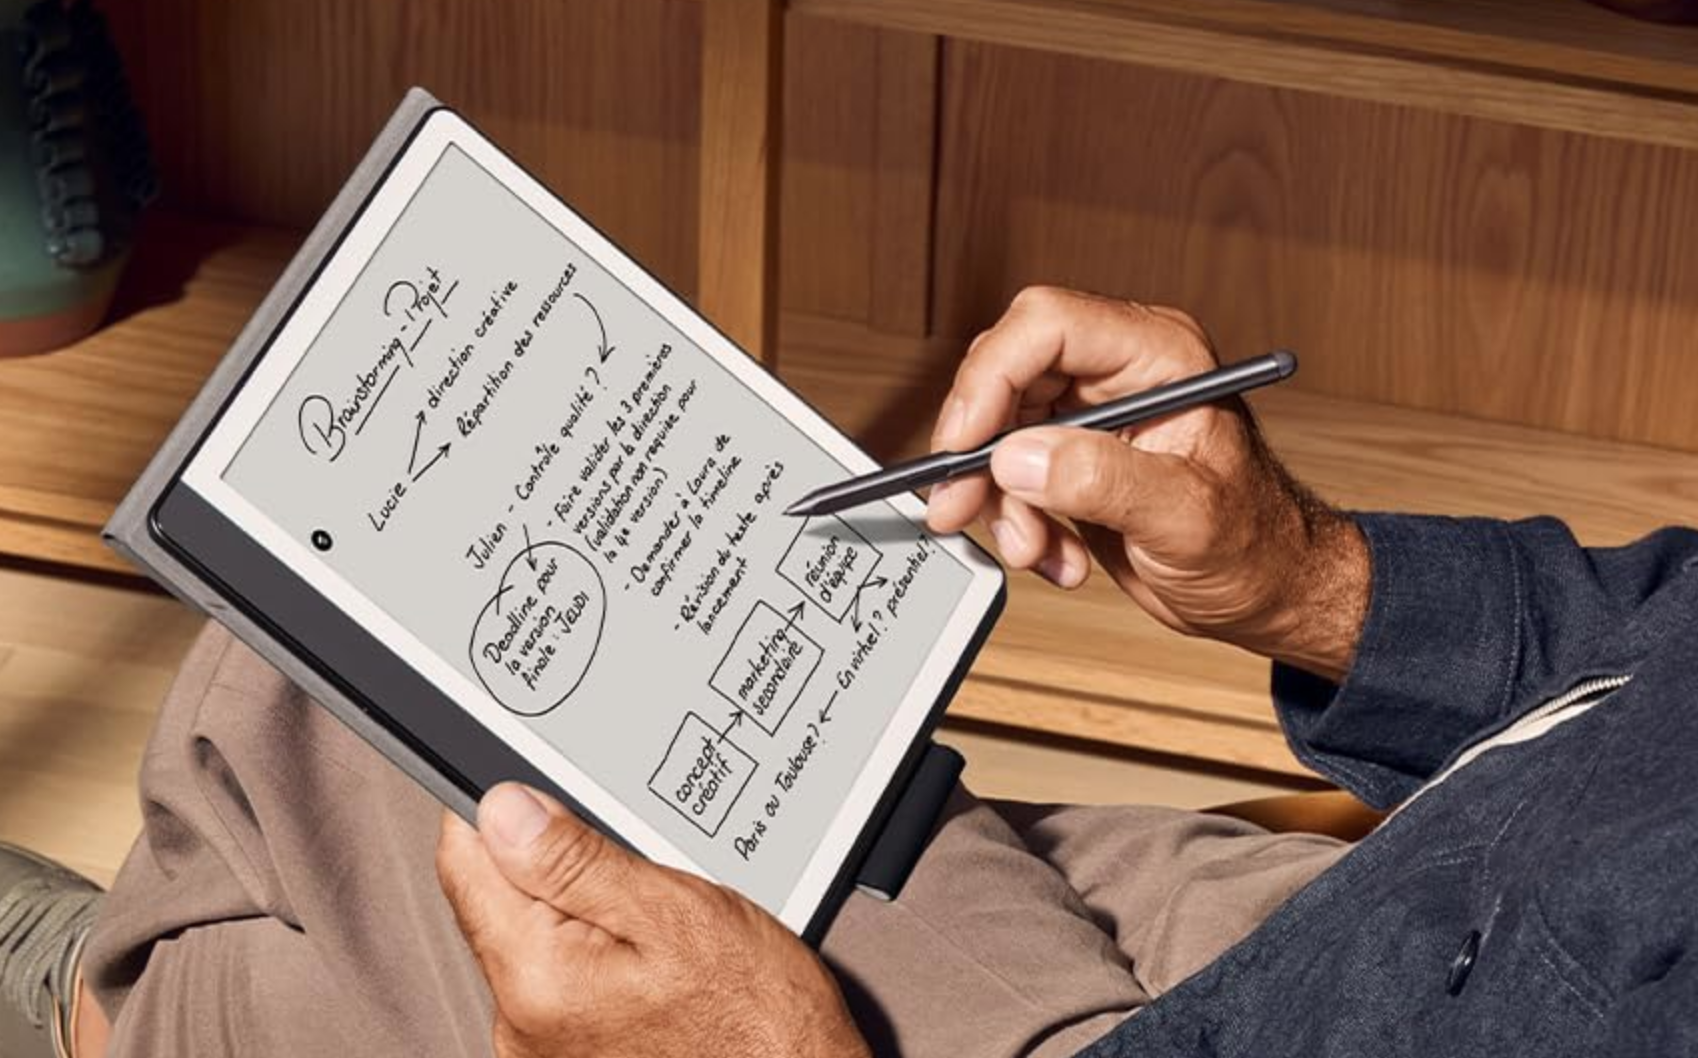 Brainstorming - Projet
Lucie
direction créative
Répartition des ressources
Julien - Contrôle qualité ?
- Faire valider les 3 premières
versions par la direction
(validation non requise pour
la 4e version)
- Demander à Laura de
confirmer la timeline
- Révision du texte après
lancement
Deadline pour
la version
finale : JEUDI
concept
créatif
marketing
secondaire
réunion
d'équipe
En virtuel ? présentiel ?
Paris ou Toulouse ?